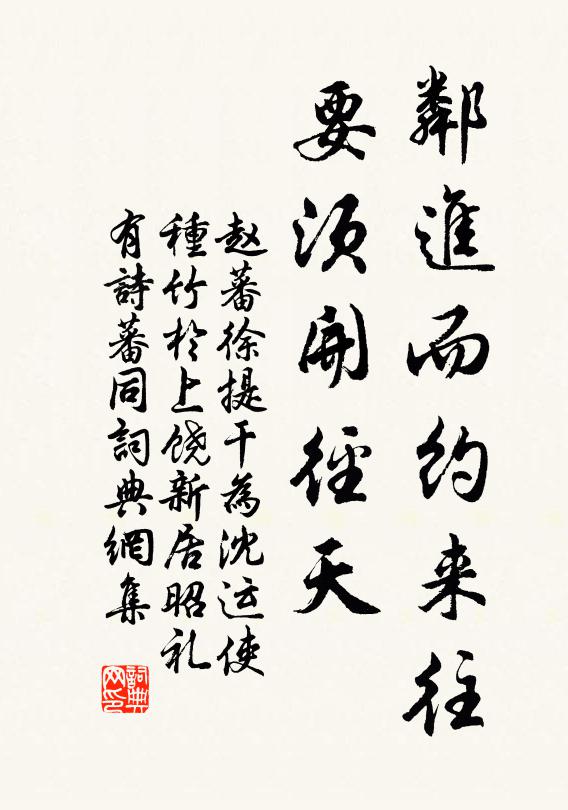 鄰進而約来往
要須開径天
赵蕃徐提干為沈运使
種竹於上饶新居昭礼
有詩蕃同詞典網集
詞典
网印